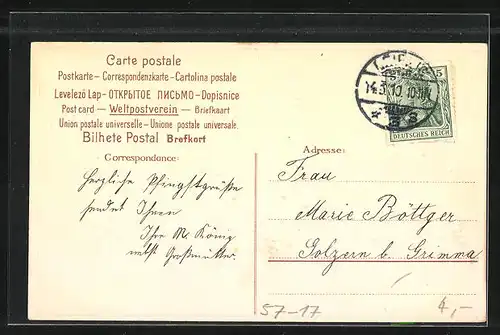 Carte postale
Postkarte – Correspondenzkarte – Cartolina postale
Levelező Lap – ОТКРЫТОЕ ПИСЬМО – Dopisnice
Post card — Weltpostverein — Briefkaart
Union postale universelle – Unione postale universale.
Bilhete Postal Brefkort
Correspondence:
Herzliche Pfingstgrüße
sendet Ihnen
Ihre M. König
nebst Großmutter.
14.5.10. 10-11
5
DEUTSCHES REICH
Adresse:
Frau
Marie Böttger
Golzern b. Grimma
57-17
4,-